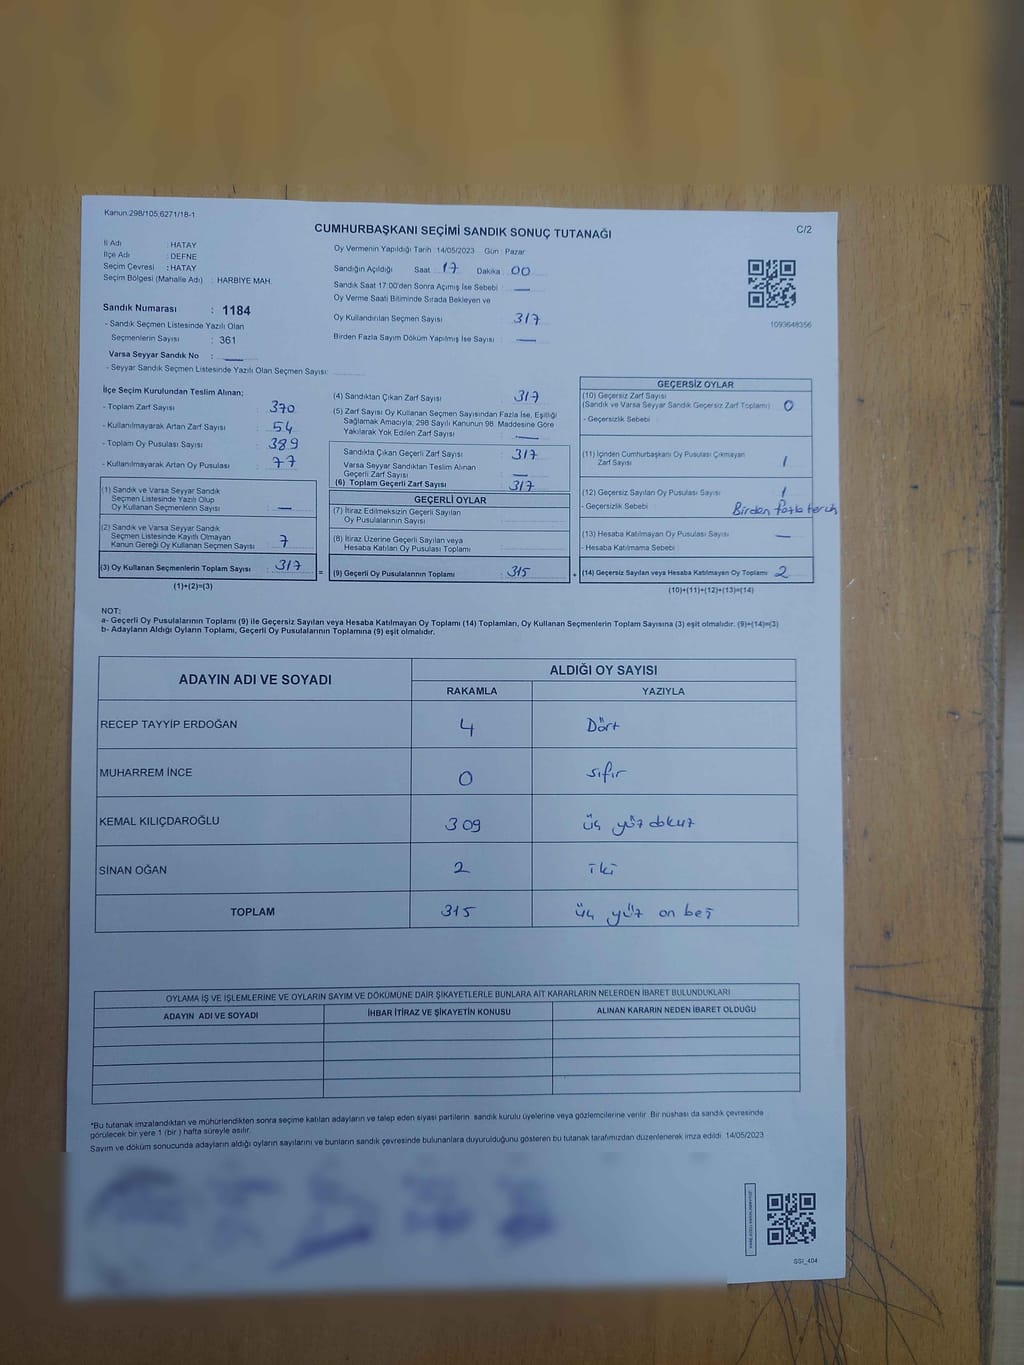 Kanun.298/105,6271/18-1
CUMHURBAŞKANI SEÇİMİ SANDIK SONUÇ TUTANAĞI
C/2
İl Adı : HATAY
İlçe Adı : DEFNE
Seçim Çevresi : HATAY
Seçim Bölgesi (Mahalle Adı) : HARBİYE MAH.
Sandık Numarası : 1184
- Sandık Seçmen Listesinde Yazılı Olan
Seçmenlerin Sayısı : 361
Varsa Seyyar Sandık No : —
- Seyyar Sandık Seçmen Listesinde Yazılı Olan Seçmen Sayısı:
Oy Vermenin Yapıldığı Tarih : 14/05/2023 Gün : Pazar
Sandığın Açıldığı Saat : 17 Dakika : 00
Sandık Saat 17:00'den Sonra Açımış İse Sebebi : —
Oy Verme Saati Bitiminde Sırada Bekleyen ve
Oy Kullandırılan Seçmen Sayısı : 317
Birden Fazla Sayım Döküm Yapılmış İse Sayısı : —
1093648356
İlçe Seçim Kurulundan Teslim Alınan;
- Toplam Zarf Sayısı : 370
- Kullanılmayarak Artan Zarf Sayısı : 54
- Toplam Oy Pusulası Sayısı : 389
- Kullanılmayarak Artan Oy Pusulası : 77
(1) Sandık ve Varsa Seyyar Sandık
Seçmen Listesinde Yazılı Olup
Oy Kullanan Seçmenlerin Sayısı : —
(2) Sandık ve Varsa Seyyar Sandık
Seçmen Listesinde Kayıtlı Olmayan
Kanun Gereği Oy Kullanan Seçmen Sayısı : 7
(3) Oy Kullanan Seçmenlerin Toplam Sayısı : 317
(1)+(2)=(3)
=
(4) Sandıktan Çıkan Zarf Sayısı : 317
(5) Zarf Sayısı Oy Kullanan Seçmen Sayısından Fazla İse, Eşitliği
Sağlamak Amacıyla; 298 Sayılı Kanunun 98. Maddesine Göre
Yakılarak Yok Edilen Zarf Sayısı : —
Sandıkta Çıkan Geçerli Zarf Sayısı : 317
Varsa Seyyar Sandıktan Teslim Alınan
Geçerli Zarf Sayısı : —
(6) Toplam Geçerli Zarf Sayısı : 317
GEÇERLİ OYLAR
(7) İtiraz Edilmeksizin Geçerli Sayılan
Oy Pusulalarının Sayısı :
(8) İtiraz Üzerine Geçerli Sayılan veya
Hesaba Katılan Oy Pusulası Toplamı :
(9) Geçerli Oy Pusulalarının Toplamı : 315
+
GEÇERSİZ OYLAR
(10) Geçersiz Zarf Sayısı
(Sandık ve Varsa Seyyar Sandık Geçersiz Zarf Toplamı) : 0
- Geçersizlik Sebebi :
(11) İçinden Cumhurbaşkanı Oy Pusulası Çıkmayan
Zarf Sayısı : 1
(12) Geçersiz Sayılan Oy Pusulası Sayısı : 1
- Geçersizlik Sebebi : Birden fazla tercih
(13) Hesaba Katılmayan Oy Pusulası Sayısı : —
- Hesaba Katılmama Sebebi :
(14) Geçersiz Sayılan veya Hesaba Katılmayan Oy Toplamı : 2
(10)+(11)+(12)+(13)=(14)
NOT:
a- Geçerli Oy Pusulalarının Toplamı (9) ile Geçersiz Sayılan veya Hesaba Katılmayan Oy Toplamı (14) Toplamları, Oy Kullanan Seçmenlerin Toplam Sayısına (3) eşit olmalıdır. (9)+(14)=(3)
b- Adayların Aldığı Oyların Toplamı, Geçerli Oy Pusulalarının Toplamına (9) eşit olmalıdır.
ADAYIN ADI VE SOYADI ALDIĞI OY SAYISI
RAKAMLA YAZIYLA
RECEP TAYYİP ERDOĞAN 4 Dört
MUHARREM İNCE 0 sıfır
KEMAL KILIÇDAROĞLU 309 üç yüz dokuz
SİNAN OĞAN 2 iki
TOPLAM 315 üç yüz on beş
OYLAMA İŞ VE İŞLEMLERİNE VE OYLARIN SAYIM VE DÖKÜMÜNE DAİR ŞİKAYETLERLE BUNLARA AİT KARARLARIN NELERDEN İBARET BULUNDUKLARI
ADAYIN ADI VE SOYADI İHBAR İTİRAZ VE ŞİKAYETİN KONUSU ALINAN KARARIN NEDEN İBARET OLDUĞU
*Bu tutanak imzalandıktan ve mühürlendikten sonra seçime katılan adayların ve talep eden siyasi partilerin sandık kurulu üyelerine veya gözlemcilerine verilir. Bir nüshası da sandık çevresinde
görülecek bir yere 1 (bir ) hafta süreyle asılır.
Sayım ve döküm sonucunda adayların aldığı oyların sayılarını ve bunların sandık çevresinde bulunanlara duyurulduğunu gösteren bu tutanak tarafımızdan düzenlenerek imza edildi. 14/05/2023
SSI_404